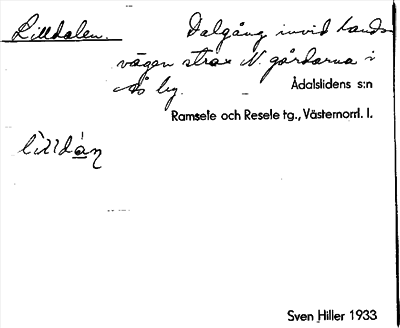 Lilldalen. Dalgång invid lands-
vägen strax N. gårdarna i
Ås by. Ådalslidens s:n
Ramsele och Resele tg., Västernorrl. l.
lìlldán
Sven Hiller 1933